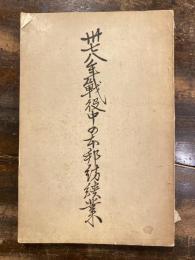 卅七八年戦役中の本邦紡績業